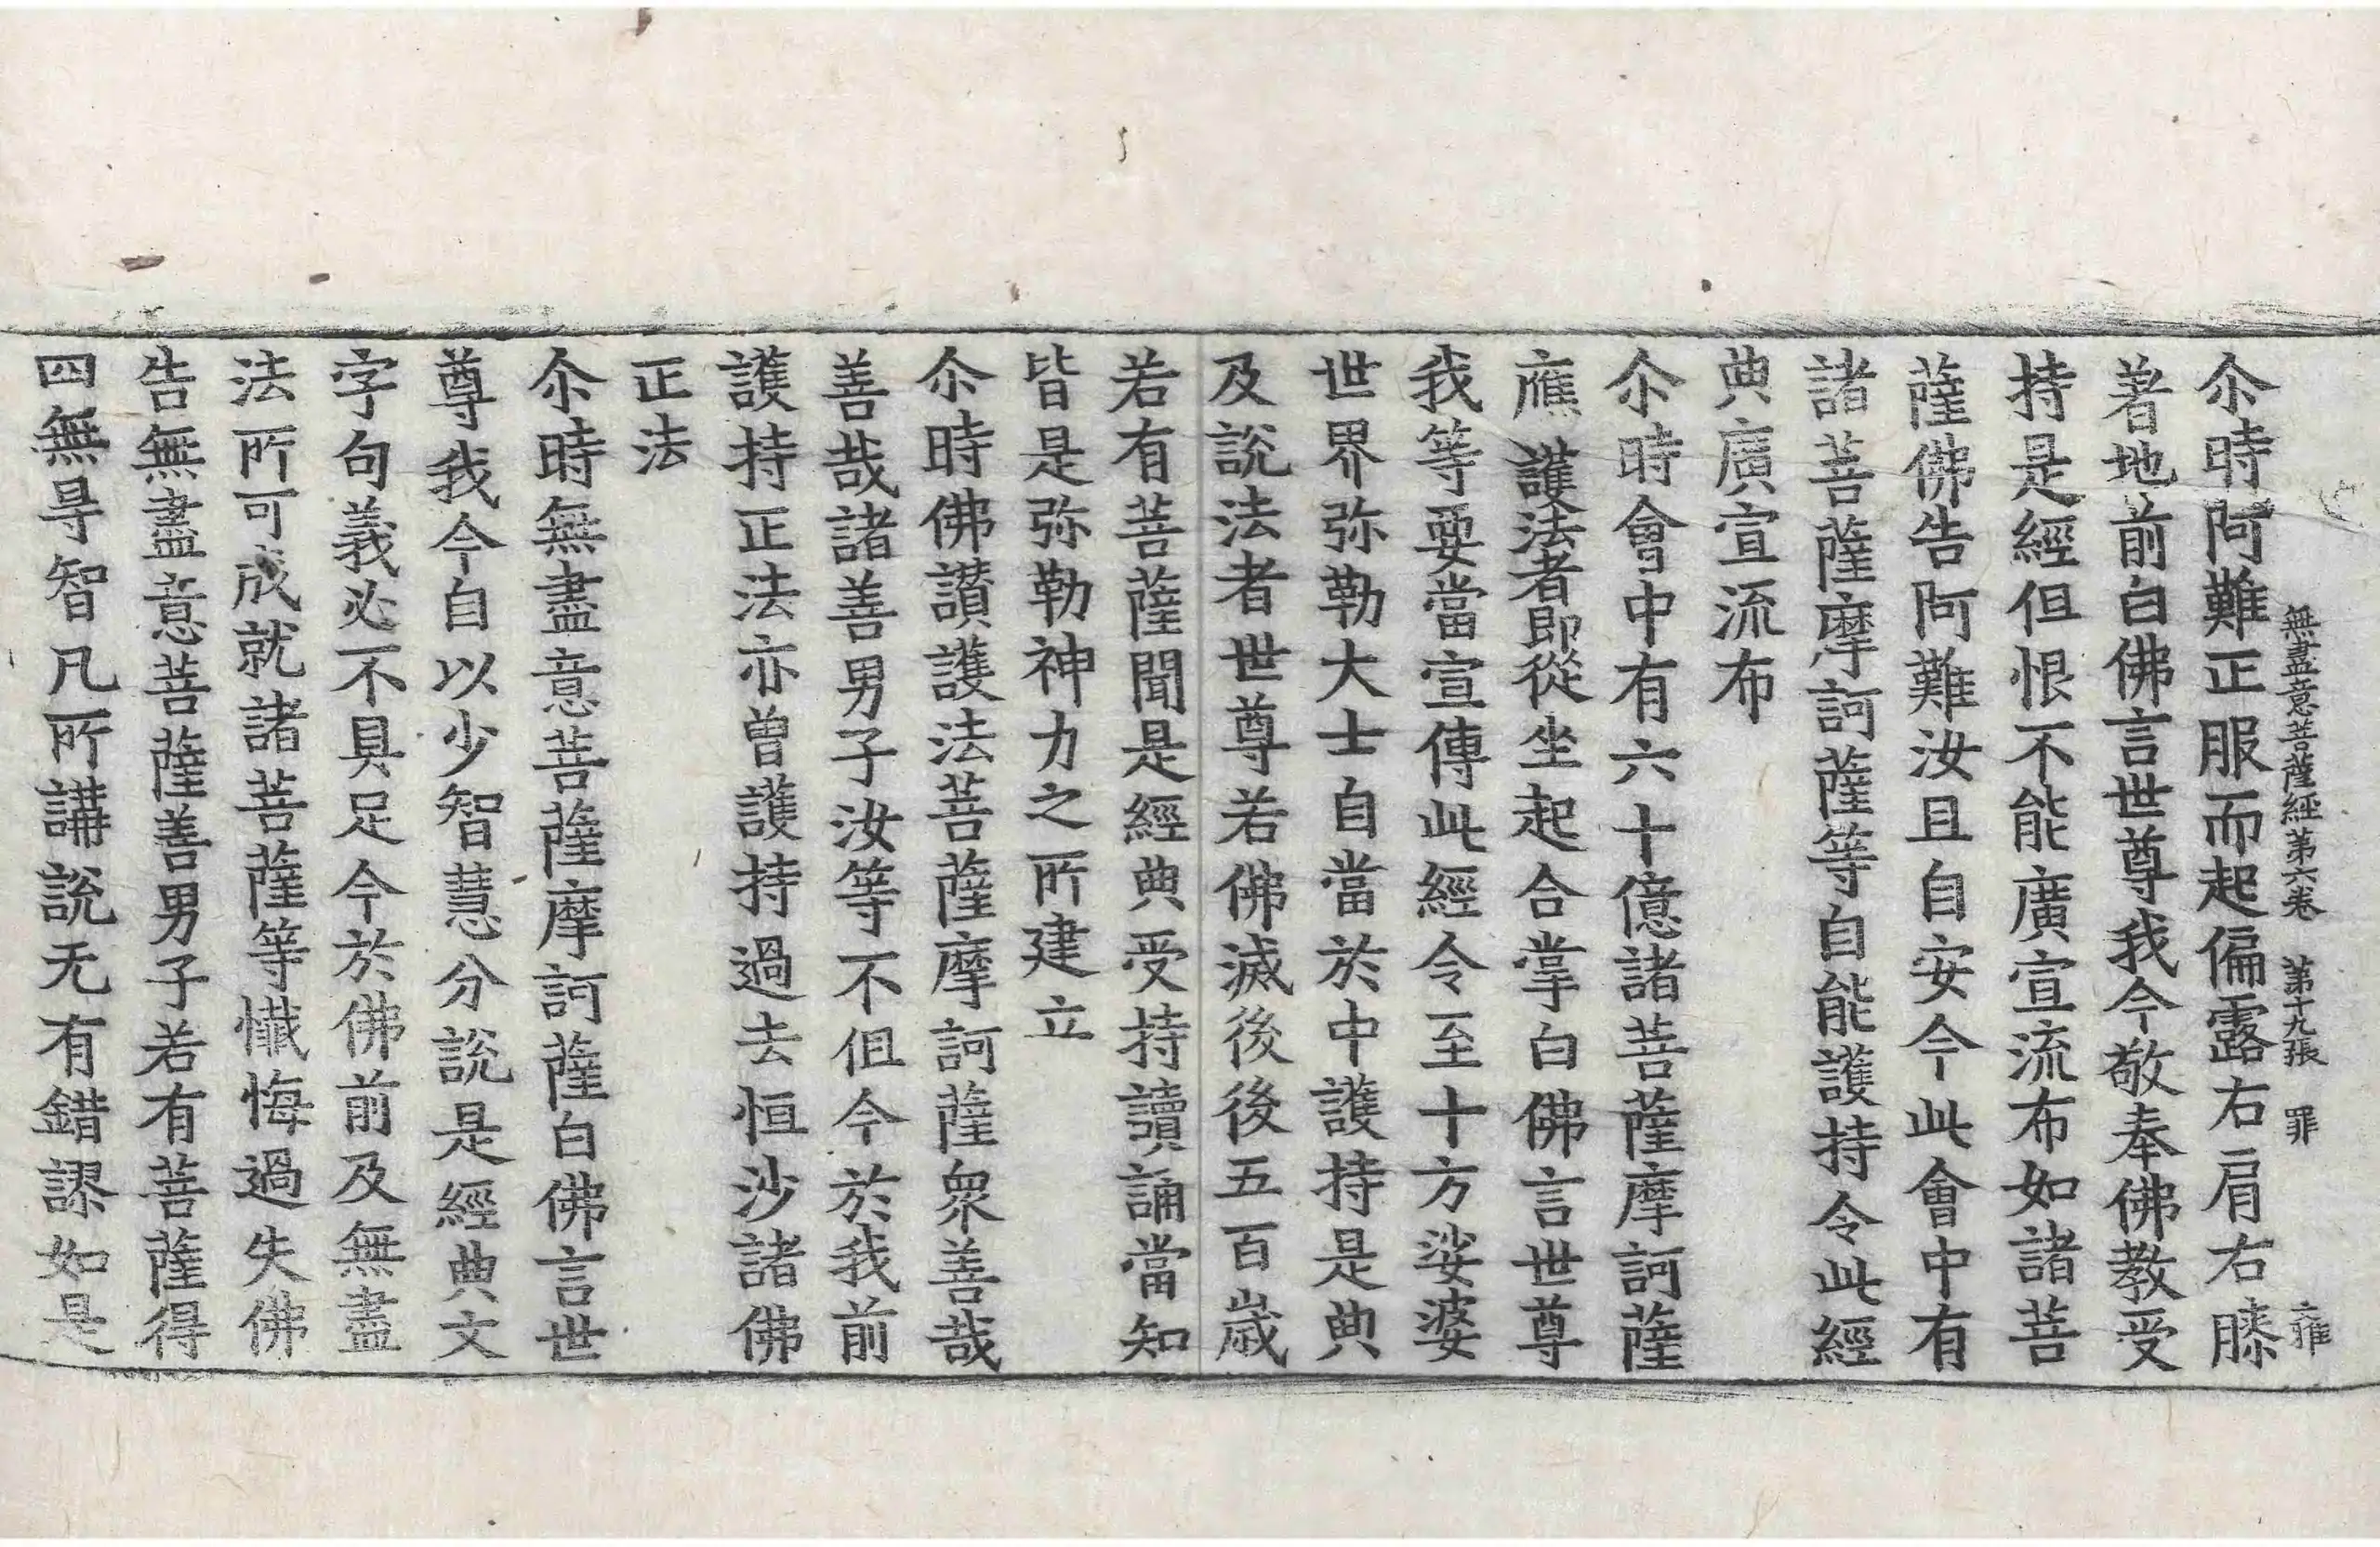 無盡意菩薩經第六卷 第十九張 罪
尒時阿難正服而起偏露右肩右膝
著地前白佛言世尊我今敬奉佛教受
持是經但恨不能廣宣流布如諸菩
薩佛告阿難汝且自安今此會中有
諸菩薩摩訶薩等自能護持令此經
典廣宣流布
尒時會中有六十億諸菩薩摩訶薩
應護法者即從坐起合掌白佛言世尊
我等要當宣傳此經令至十方娑婆
世界弥勒大士自當於中護持是典
及說法者世尊若佛滅後後五百歲
若有菩薩聞是經典受持讀誦當知
皆是弥勒神力之所建立
尒時佛讃護法菩薩摩訶薩衆善哉
善哉諸善男子汝等不但今於我前
護持正法亦曾護持過去恒沙諸佛
正法
尒時無盡意菩薩摩訶薩白佛言世
尊我今自以少智慧分說是經典文
字句義必不具足今於佛前及無盡
法所可成就諸菩薩等懺悔過失佛
告無盡意菩薩善男子若有菩薩得
四無㝵智凡所講說无有錯謬如是